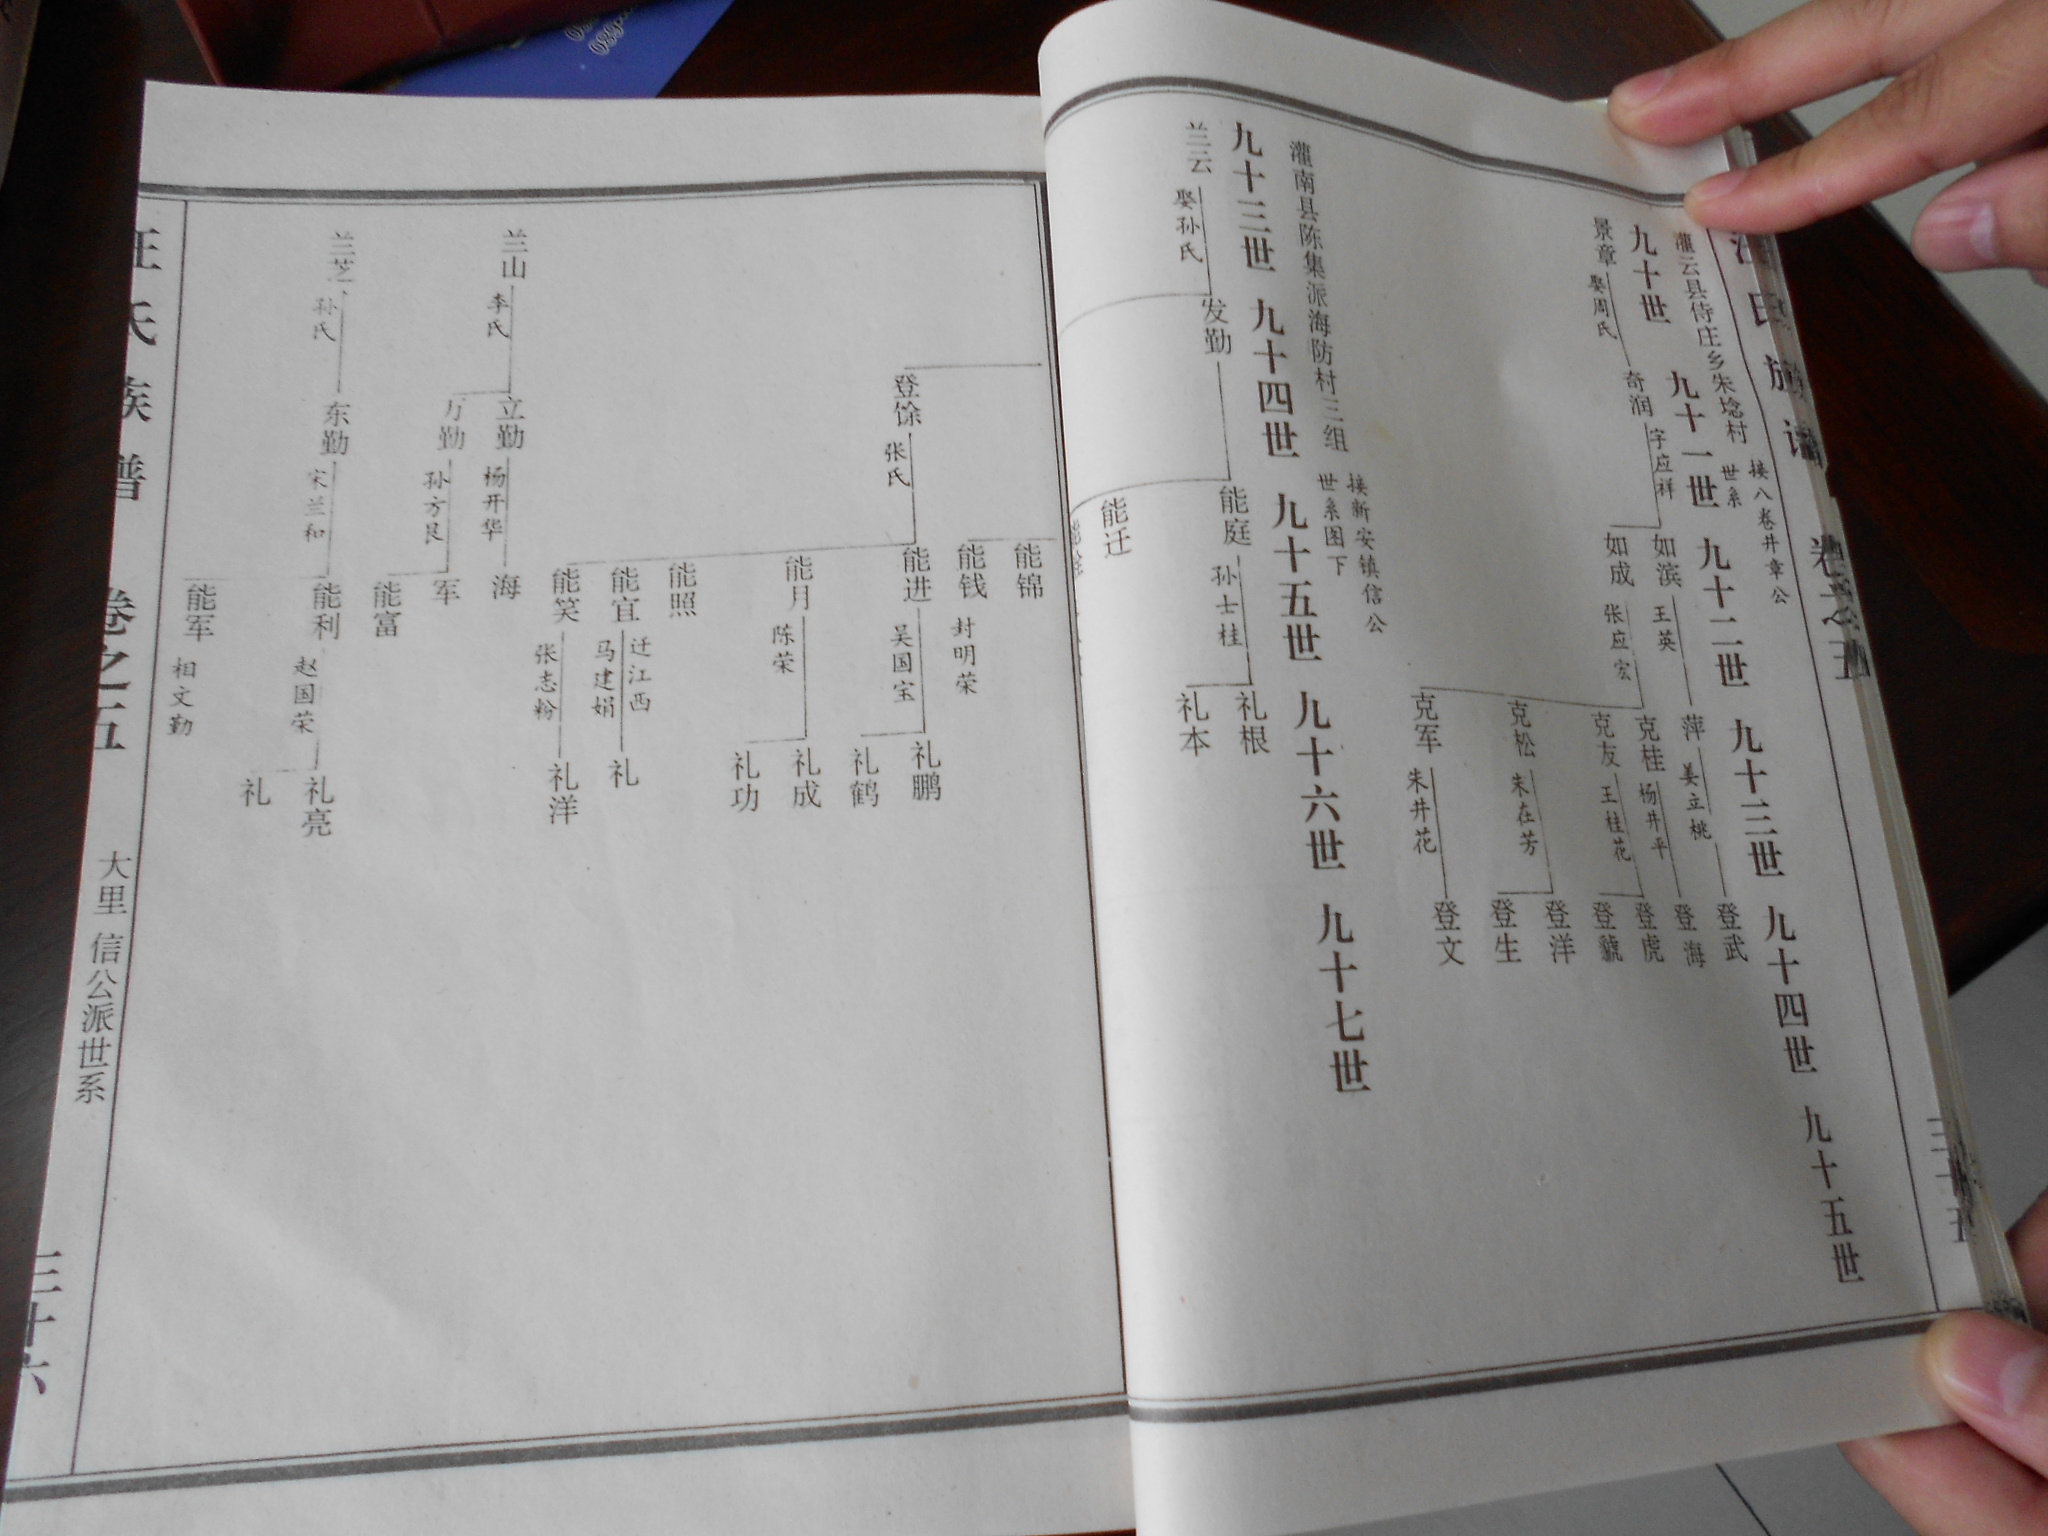 汪氏族谱 卷之五
三十五
灌云县侍庄乡朱埝村 世系 接八卷井章公
九十世 九十一世 九十二世 九十三世 九十四世 九十五世
景章 娶周氏
奇润 字应祥
如滨 王英
如成 张应宏
萍 姜立桃
克桂 杨井平
克友 王桂花
克松 朱在芳
克军 朱井花
登武
登海
登虎
登虢
登洋
登生
登文
灌南县陈集派海防村三组 世系图下 接新安镇信公
九十三世 九十四世 九十五世 九十六世 九十七世
兰云 娶孙氏
发勤
能庭 孙士桂
能迁
礼根
礼本
登馀 张氏
能锦
能钱 封明荣
能进 吴国宝
能月 陈荣
能照
能宜 迁江西 马建娟
能笑 张志粉
礼鹏
礼鹤
礼成
礼功
礼
礼洋
兰山 李氏
立勤 杨开华
万勤 孙方艮
海
军
能富
兰芝 孙氏
东勤 宋兰和
能利 赵国荣
能军 相文勤
礼亮
礼
汪氏族谱 卷之五
大里 信公派世系
三十六